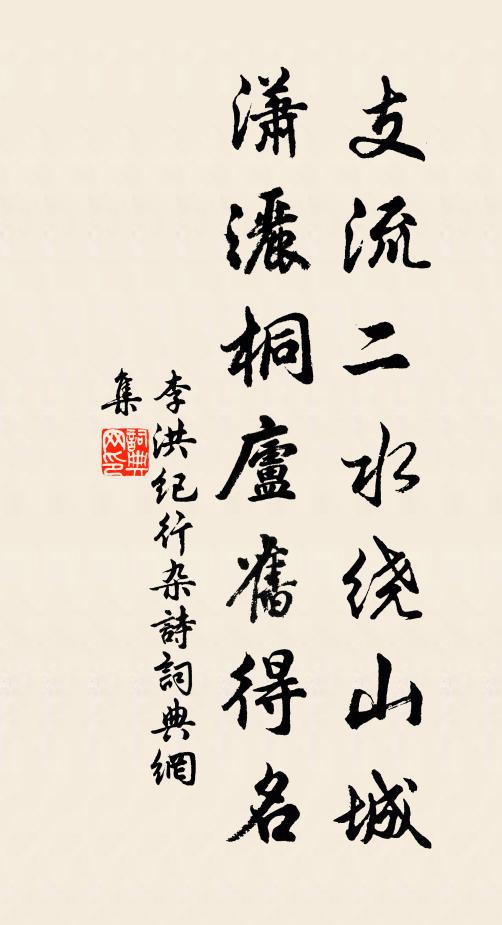 支流二水绕山城
瀟灑桐廬舊得名
李洪纪行杂詩詞典網
集
詞典
网印